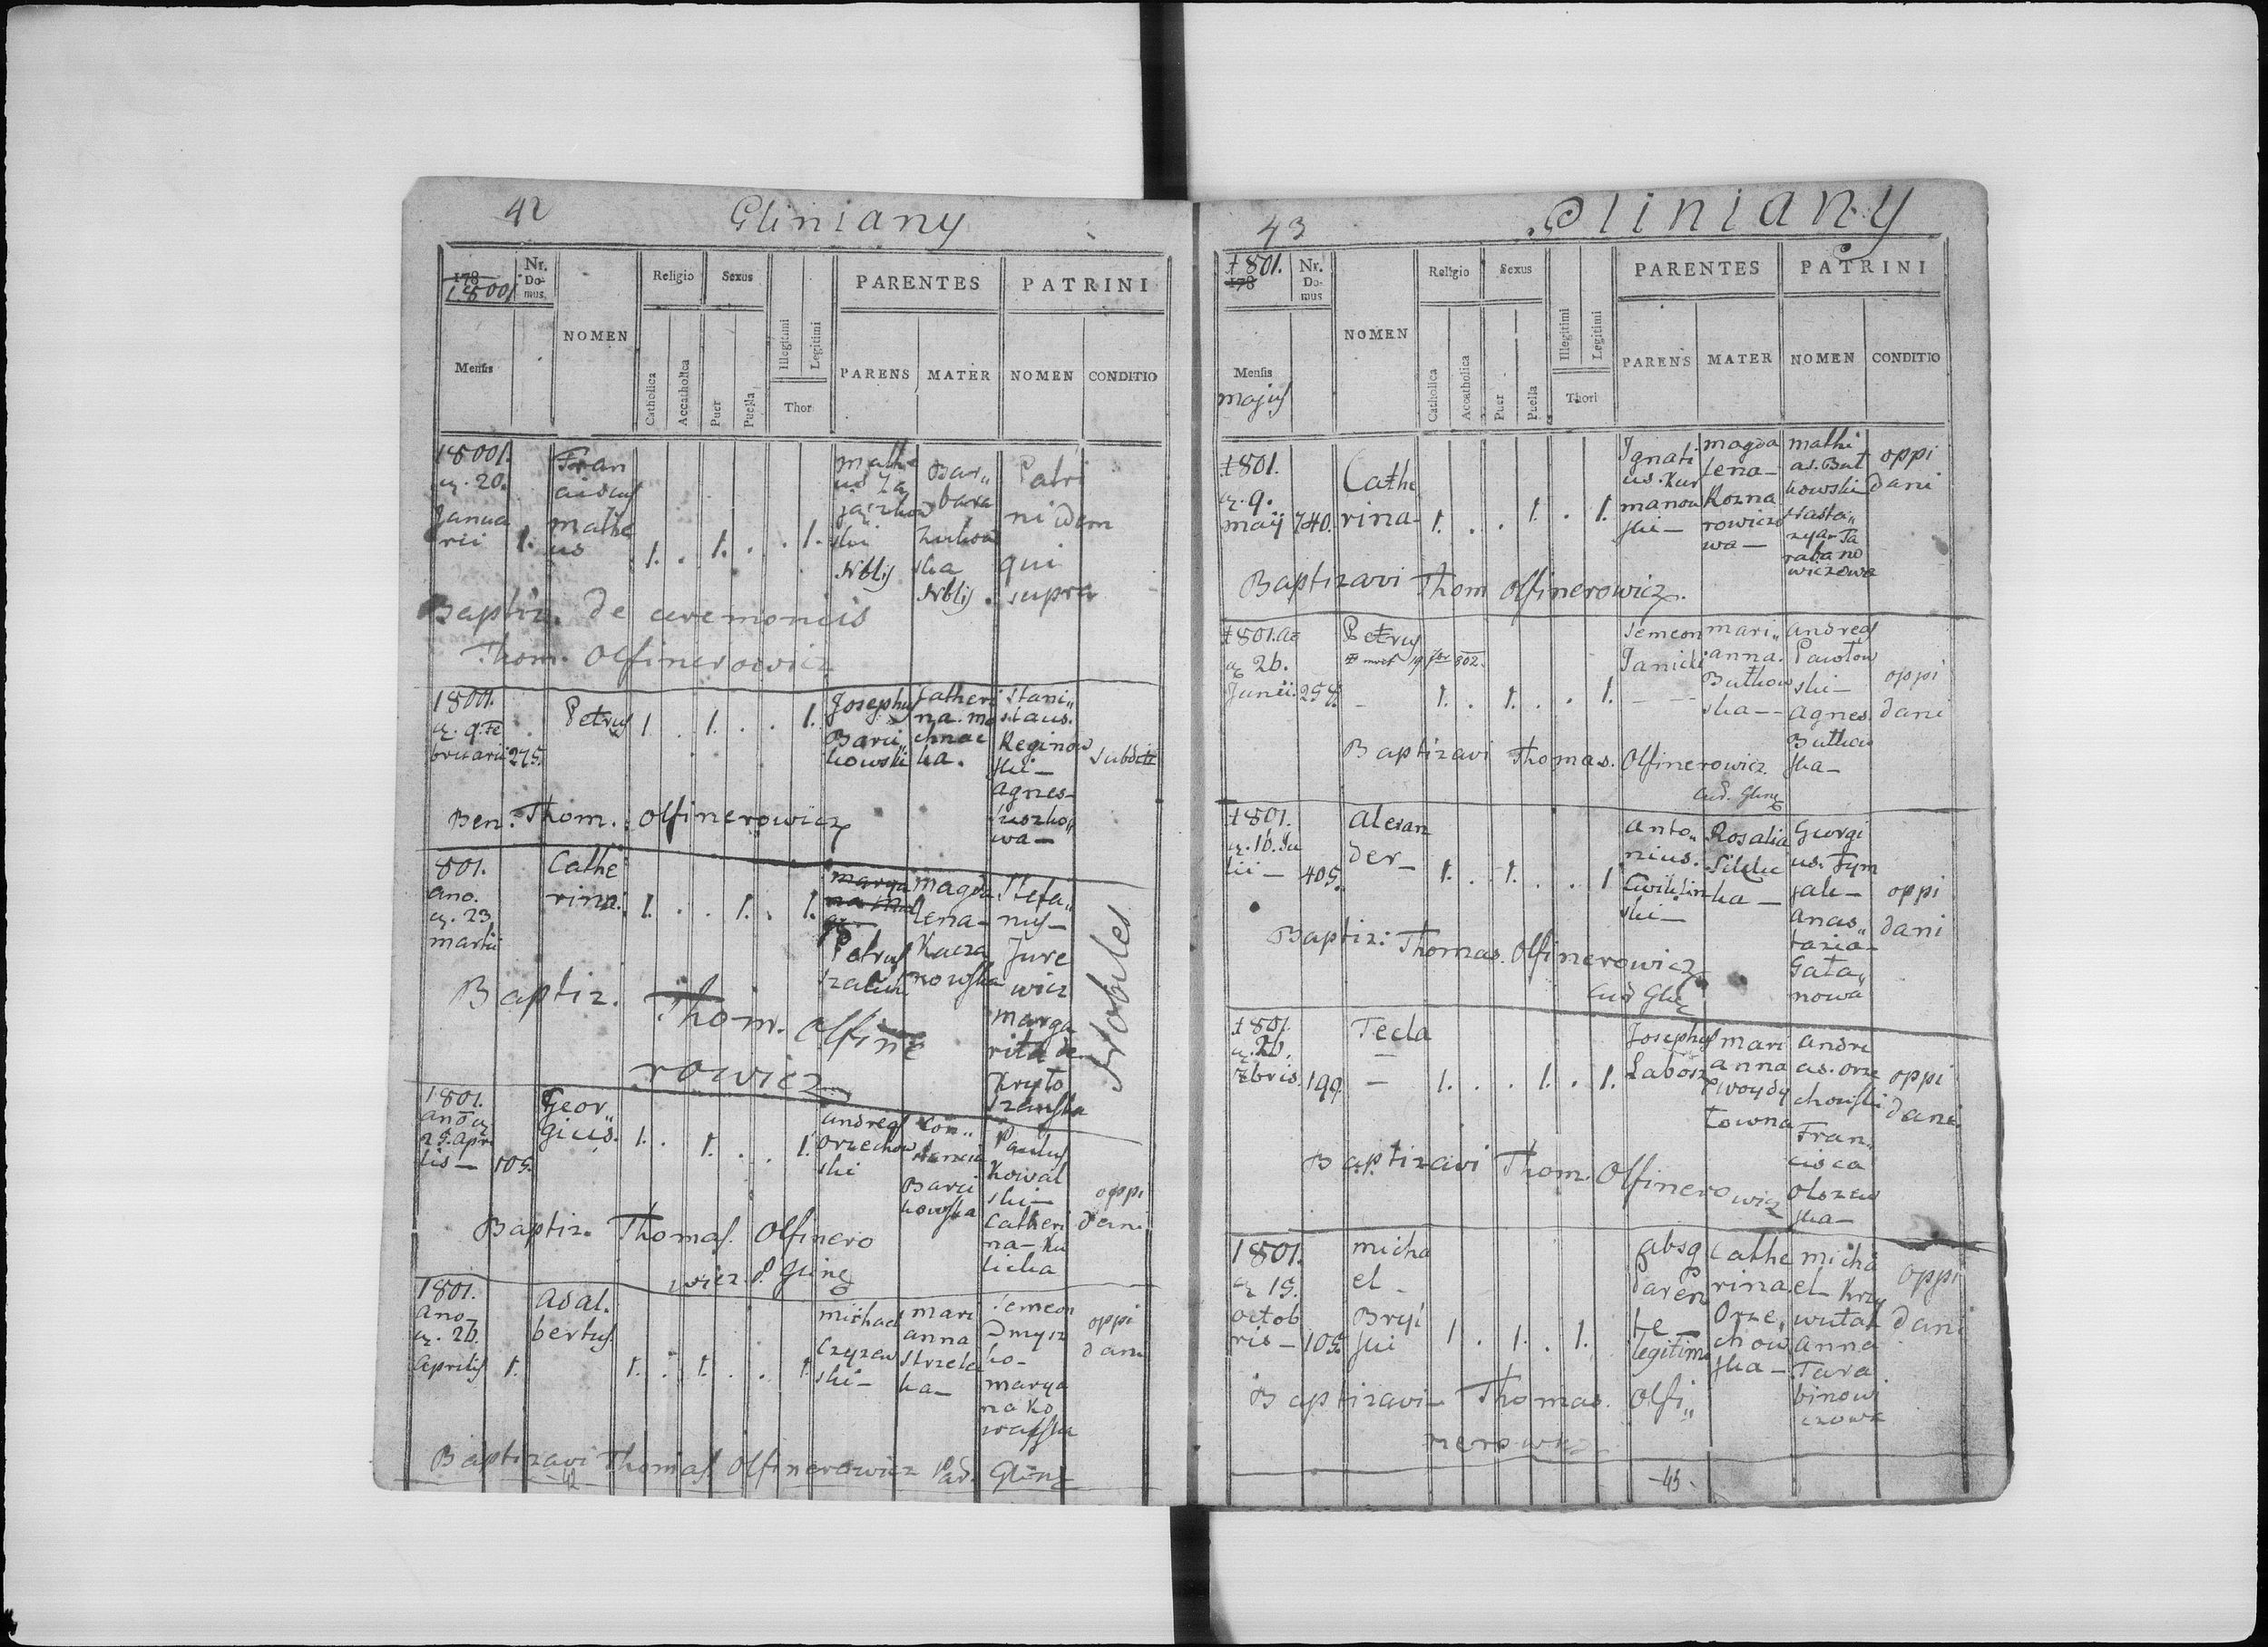 42
Gliniany
178
18001
Nr. Domus
NOMEN
Religio
Sexus
PARENTES
PATRINI
Mensis
Catholica
Accatholica
Puer
Puella
Illegitimi
Legitimi
Thori
PARENS
MATER
NOMEN
CONDITIO
18001.
20.
Janua
rii 1.
Fran
ciscus
Mathe
us
1. . 1. . . 1.
Nblis
Bar„
bara
ska
Nblis.
Patri
ni idem
qui
supra
Baptiz. de ceremoniis
Thom. Olfinerowicz
18001.
9. Fe
bruarii 275.
Petrus
1 . 1. . . 1.
Josephus
Barci„
kowski
Catheri
na. Mo
chnac
ka.
Stani„
slaus.
Reginow
ski –
Agnes –
wa –
subditi
Ben: Thom. Olfinerowicz
801.
Ano.
23
Martii
Cathe
rina.
1. . . 1. . 1.
Petrus
Magda
lena –
Kacza
nowska
Stefa„
nus –
Jure
wicz
Marga
rita de
Nobiles
Baptiz. Thom. Olfine
rowicz
1801.
Ano
25. Apri
lis – 105.
Geor„
gius.
1. . 1. . . 1.
Andreas
Orzechow
ski
Con„
stancia
Barci
kowska
Paulus
Kowal
ski –
Catheri
na – Ku
licka
oppi
dani
Baptiz. Thomas. Olfinero
wicz. P. Glinę
1801.
Ano
26.
Aprilis 1.
Adal.
bertus
1. . 1. . . 1.
Michael
Czyzew
ski –
Mari
anna
Strzelec
ka –
Semeon
Dmysz
ko –
Marya
na Ko
walska
oppi
dani
Baptizavi Thomas Olfinerowicz Pad. Glinę
42
43
Gliniany
1801.
178
Nr. Domus
NOMEN
Religio
Sexus
PARENTES
PATRINI
Mensis
Majus
Catholica
Accatholica
Puer
Puella
Illegitimi
Legitimi
Thori
PARENS
MATER
NOMEN
CONDITIO
1801.
9.
Maij 740.
Cathe
rina –
1. . . 1. . 1.
Ignati
us. Kur
manow
ski –
Magda
lena –
Kozna
rowiczo
wa –
Mathi
as. But
kowski
Nasta„
zya – Ta
rabano
wiczowa
oppi
dani
Baptizavi Thom Olfinerowicz.
1801. Ao
26.
Junii. 258.
Petrus
1. . 1. . . 1.
Semeon
Janicki
Mari„
anna.
Butkow
ska –
Andreas
Pawłow
ski –
Agnes.
Butkow
ska –
oppi
dani
Baptizavi Thomas. Olfinerowicz.
1801.
16. Ju
lii – 405.
Alexan
der –
1. . 1. . . 1
Anto„
nius.
Cwiklin
ski –
Rosalia
ka –
Georgi
us. Tym
Anas„
tazia –
Gała„
nowa
oppi
dani
Baptiz: Thomas. Olfinerowicz
1801.
20.
7bris 199.
Tecla
1. . . 1. . 1.
Josephus
Mari
anna
Woydy
towna
Andre
as. Orze
chowski
Fran„
cisca
Olszew
ska –
oppi
dani.
Baptizavi Thom. Olfinerowicz
1801.
15.
Octob
ris – 105.
Micha
el –
Bryl
ski
1 . 1. . 1.
absq
Paren
te
legitimo
Cathe
rina.
Orze„
chow
ska –
Micha
el Krzy
wutak
Anna
Tara
binowi
czowa
oppi
dani
Baptizavi – Thomas. Olfi„
nerowicz
– 43 –